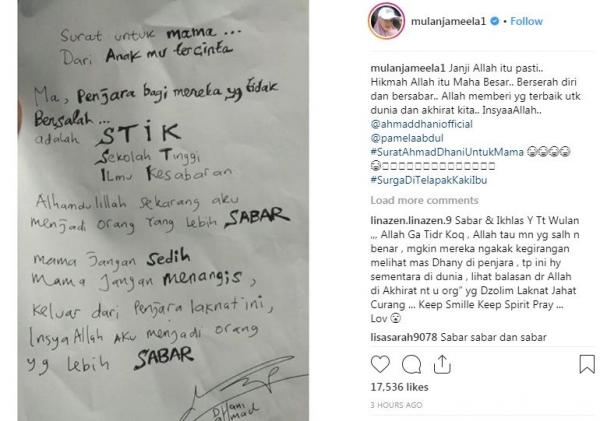 Surat untuk mama ...
Dari Anak mu tercinta
Ma, Penjara bagi mereka yg tidak
Bersalah ...
adalah STIK
Sekolah Tinggi
Ilmu Kesabaran
Alhamdulillah Sekarang aku
menjadi orang yang lebih SABAR
mama Jangan Sedih
Mama Jangan menangis,
Keluar dari Penjara laknat ini,
Insya Allah Aku menjadi orang
yg lebih SABAR
Dhani
Ahmad
mulanjameela1 • Follow
mulanjameela1 Janji Allah itu pasti..
Hikmah Allah itu Maha Besar.. Berserah diri
dan bersabar.. Allah memberi yg terbaik utk
dunia dan akhirat kita.. InsyaaAllah..
@ahmaddhaniofficial
@pamelaabdul
#SuratAhmadDhaniUntukMama
#SurgaDiTelapakKakiIbu
Load more comments
linazen.linazen.9 Sabar & Ikhlas Y Tt Wulan
,,, Allah Ga Tidr Koq , Allah tau mn yg salh n
benar , mgkin mereka ngakak kegirangan
melihat mas Dhany di penjara , tp ini hy
sementara di dunia , lihat balasan dr Allah
di Akhirat nt u org" yg Dzolim Laknat Jahat
Curang ... Keep Smille Keep Spirit Pray ...
Lov
lisasarah9078 Sabar sabar dan sabar
17,536 likes
3 HOURS AGO